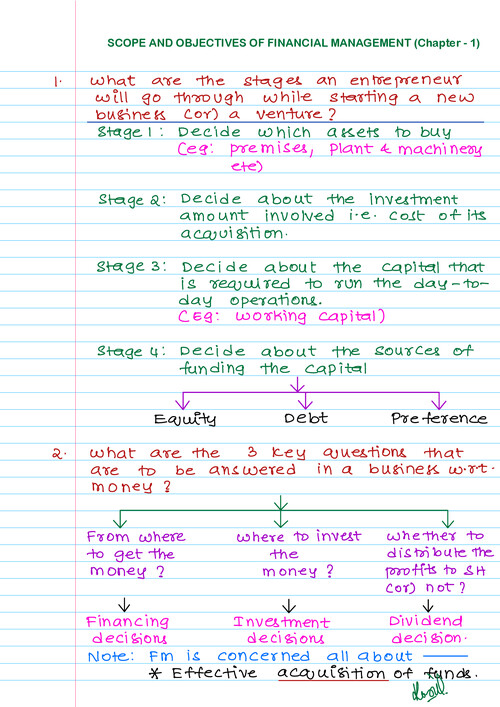 SCOPE AND OBJECTIVES OF FINANCIAL MANAGEMENT (Chapter - 1)
1. What are the stages an entrepreneur
will go through while starting a new
business (or) a venture?
Stage 1: Decide which assets to buy
(eg: premises, Plant & machinery
etc)
Stage 2: Decide about the investment
amount involved i.e. cost of its
acquisition.
Stage 3: Decide about the capital that
is required to run the day-to-
day operations.
(Eg: working capital)
Stage 4: Decide about the sources of
funding the capital
Equity Debt Preference
2. What are the 3 key questions that
are to be answered in a business w.r.t.
money?
From where where to invest whether to
to get the the distribute the
money? money? profits to SH
(or) not?
Financing Investment Dividend
decisions decisions decision.
Note: Fm is concerned all about
* Effective acquisition of funds.